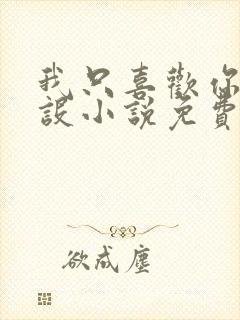 我只喜歡你
設小說免費
欲成塵